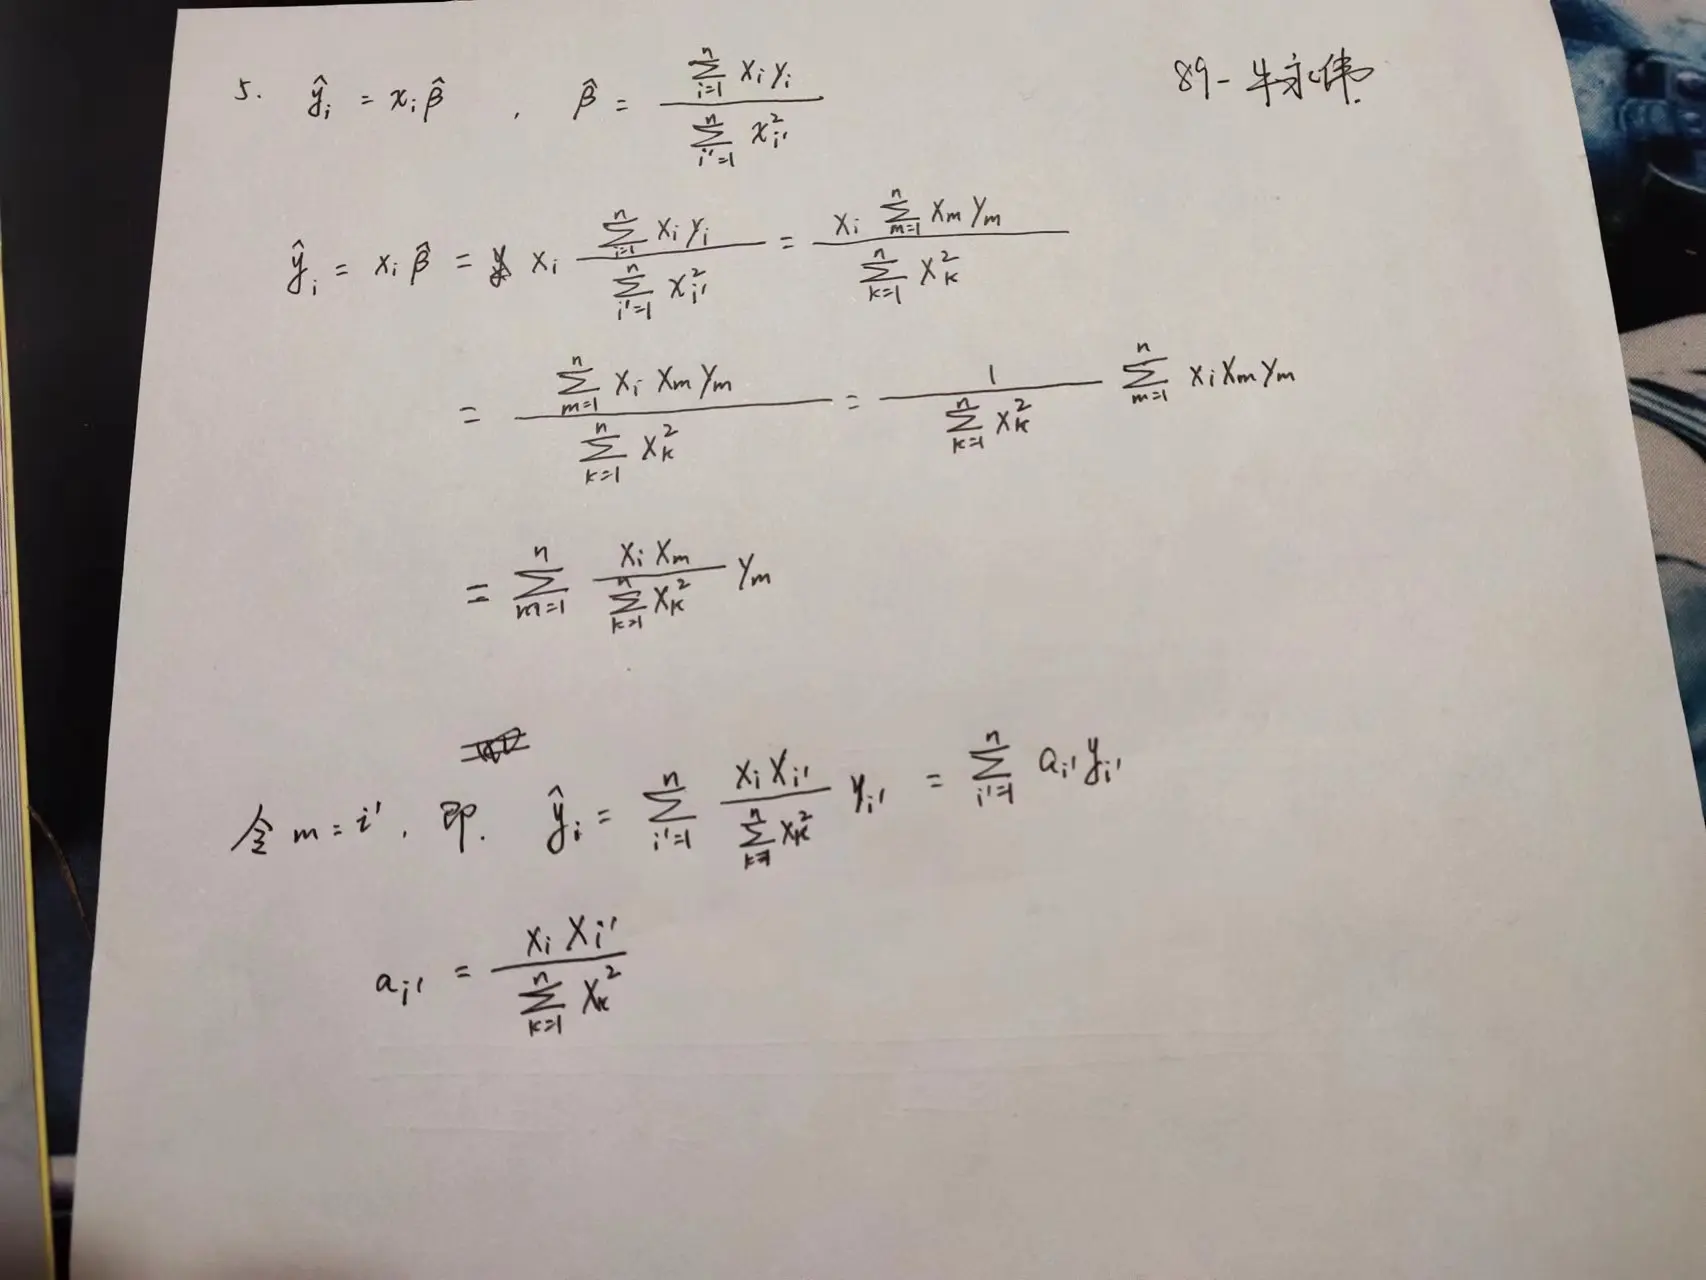 5. ŷᵢ = xᵢ β̂ , β̂ = \frac{\sum_{i=1}^{n} x_i y_i}{\sum_{i'=1}^{n} x_{i'}^2} 89-牛永伟.
ŷᵢ = xᵢ β̂ = xᵢ \frac{\sum_{i=1}^{n} x_i y_i}{\sum_{i'=1}^{n} x_{i'}^2} = \frac{x_i \sum_{m=1}^{n} x_m y_m}{\sum_{k=1}^{n} x_k^2}
= \frac{\sum_{m=1}^{n} x_i x_m y_m}{\sum_{k=1}^{n} x_k^2} = \frac{1}{\sum_{k=1}^{n} x_k^2} \sum_{m=1}^{n} x_i x_m y_m
= \sum_{m=1}^{n} \frac{x_i x_m}{\sum_{k=1}^{n} x_k^2} y_m
令 m = i', 即. ŷᵢ = \sum_{i'=1}^{n} \frac{x_i x_{i'}}{\sum_{k=1}^{n} x_k^2} y_{i'} = \sum_{i'=1}^{n} a_{i'} y_{i'}
a_{i'} = \frac{x_i x_{i'}}{\sum_{k=1}^{n} x_k^2}